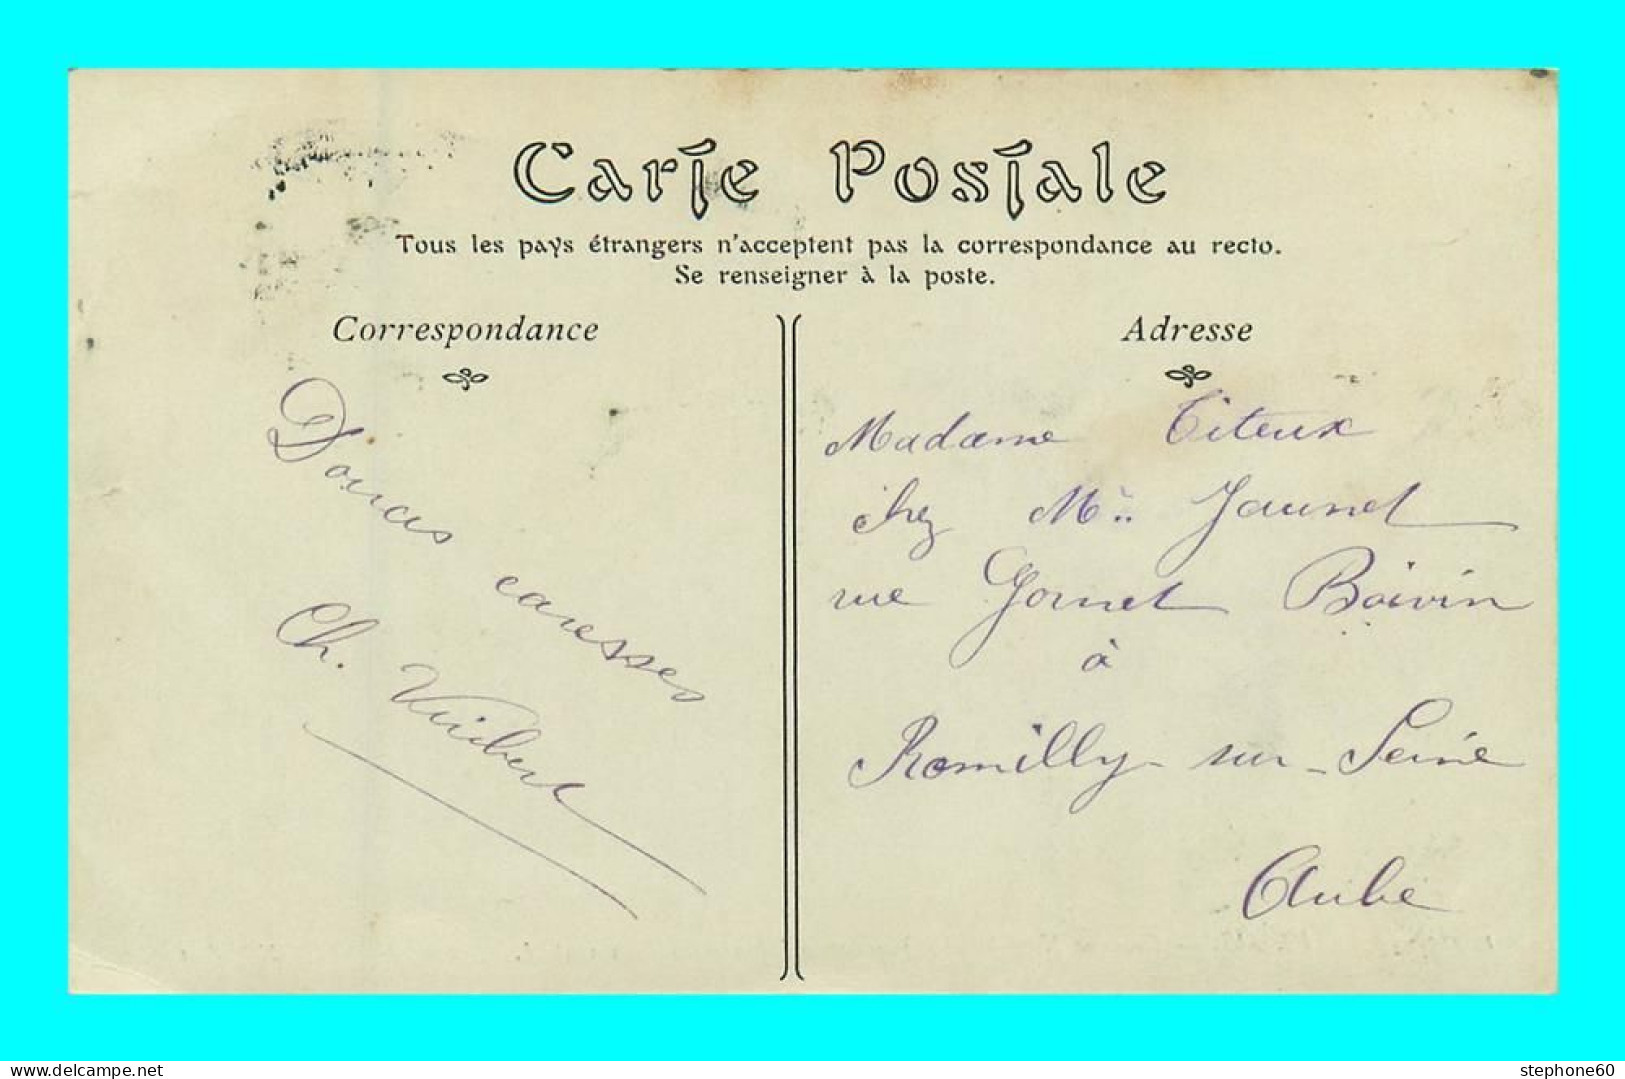 Carte Postale
Tous les pays étrangers n'acceptent pas la correspondance au recto.
Se renseigner à la poste.
Correspondance
Doux caresses
Ch.
Adresse
Madame Titeux
chez Mr Jaunet
rue Gornet Boivin
à
Romilly-sur-Seine
Aube
www.delcampe.net
stephone60